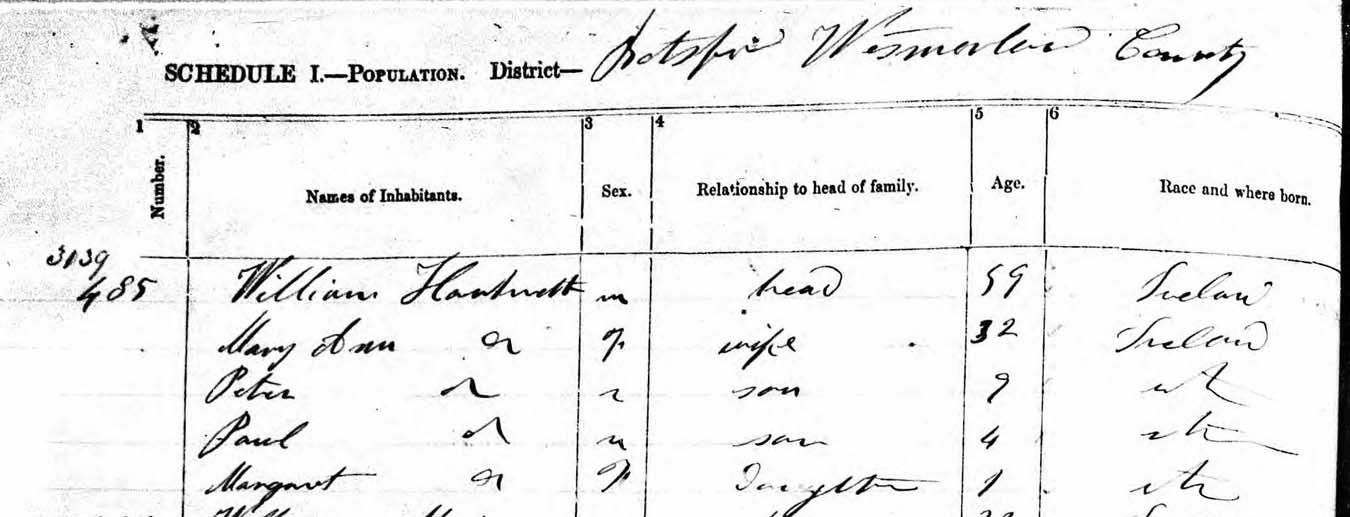 SCHEDULE I.—POPULATION. District— Botsford Wesmorland County
1 2 3 4 5 6
Number. Names of Inhabitants. Sex. Relationship to head of family. Age. Race and where born.
3139
485 William m head 59 Ireland
Mary Ann do f wife 32 Ireland
Peter do m son 9
Paul do m son 4
Margaret do f Daughter 1